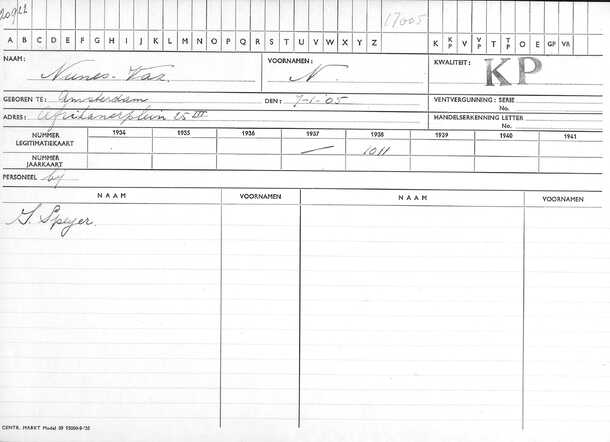 20911
17005
A B C D E F G H I J K L M N O P Q R S T U V W X Y Z K KP V VP T TP O E GP VR
NAAM: Nunes-Vaz. VOORNAMEN: N. KWALITEIT: KP
GEBOREN TE: Amsterdam DEN: 7-1-'05 VENTVERGUNNING: SERIE
No.
ADRES: Afrikanerplein 25 III HANDELSERKENNING LETTER
No.
NUMMER LEGITIMATIEKAART 1934 1935 1936 1937 1938 1939 1940 1941
— 1011
NUMMER JAARKAART
PERSONEEL by
NAAM VOORNAMEN NAAM VOORNAMEN
S. Speyer.
CENTR. MARKT Model 39